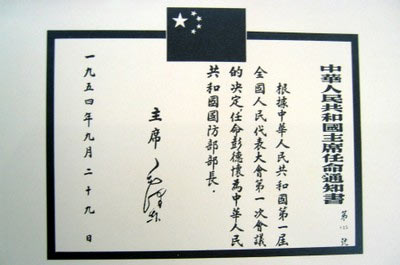 中華人民共和國主席任命通知書
第 號
根據中華人民共和國第一届
全國人民代表大會第一次會議
的决定,任命彭德懷為中華人民
共和國國防部部長.
主席 毛澤東
一九五四年九月二十九日